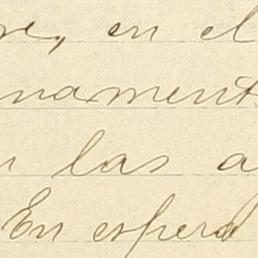 re, en el
nament
n las a
En espera